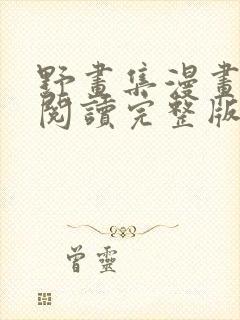 野畫集漫畫
閱讀完整版
曾靈